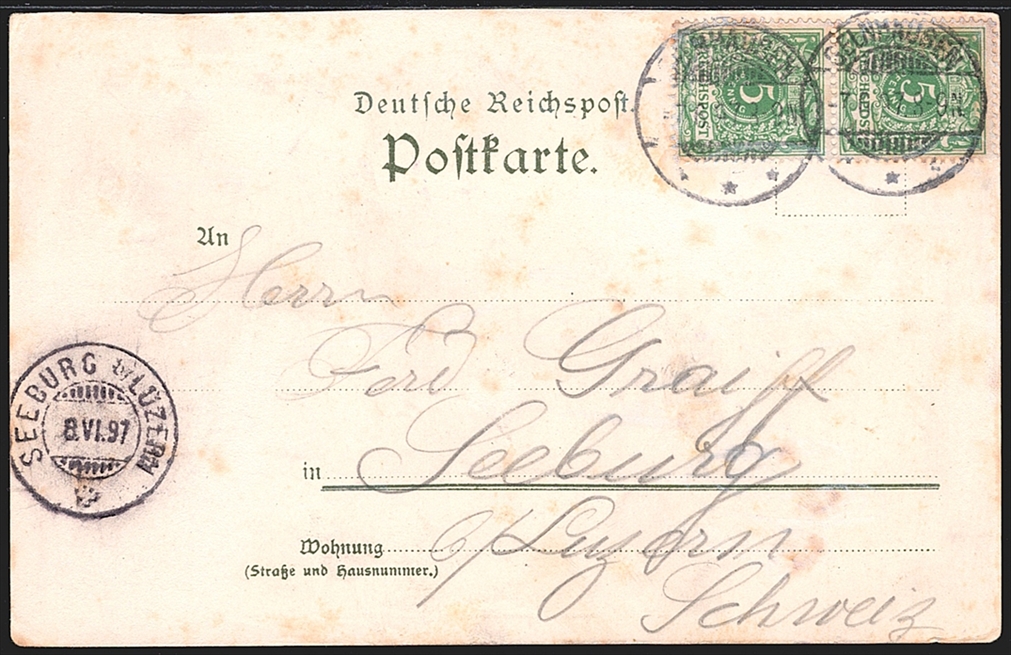 Deutsche Reichspost.
Postkarte.
GELNHAUSEN
5
REICHSPOST
GELNHAUSEN
5
An
Herrn
Ferd Graiff
SEEBURG b/LUZERN
8.VI.97
in Seeburg
Wohnung b/Luzern
(Straße und Hausnummer.)
Schweiz